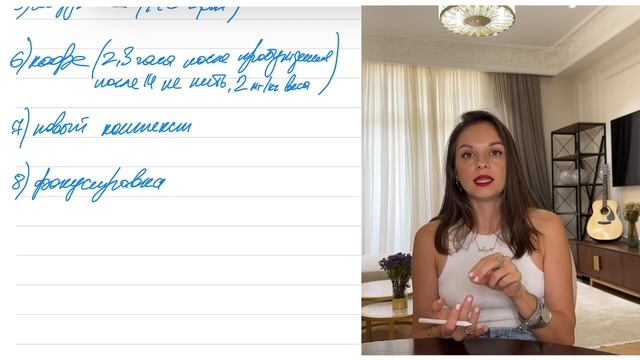 6) кофе (2,3 часа после пробуждения
после 14 не пить, 2 мг/кг веса)
7) новый контекст
8) фокусировка